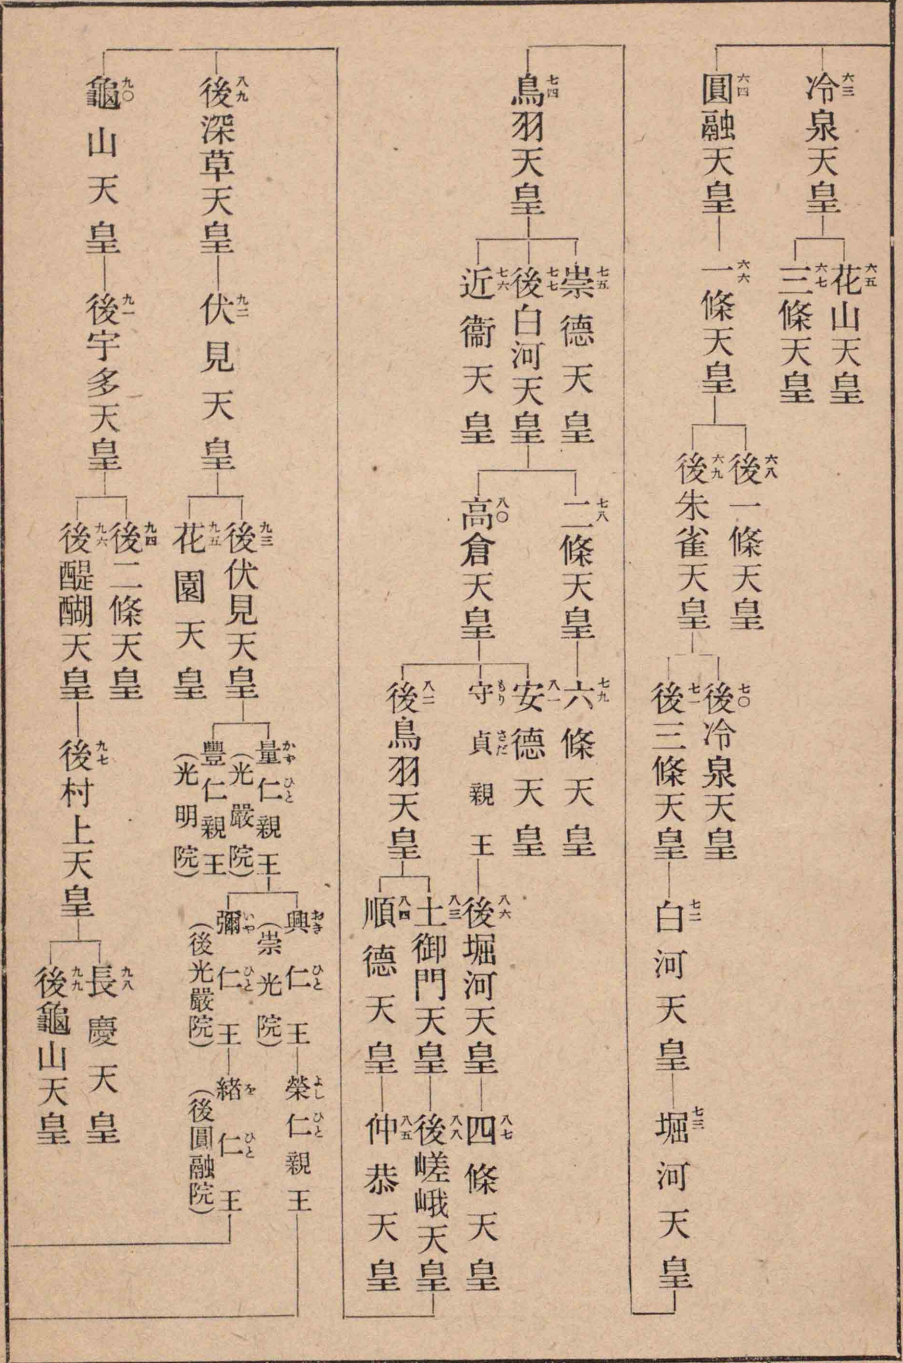 六三 冷泉天皇
六五 花山天皇
六七 三條天皇
六四 圓融天皇
六六 一條天皇
六八 後一條天皇
六九 後朱雀天皇
七〇 後冷泉天皇
七一 後三條天皇
七二 白河天皇
七三 堀河天皇
七四 鳥羽天皇
七五 崇德天皇
七七 後白河天皇
七六 近衞天皇
七八 二條天皇
七九 六條天皇
八〇 高倉天皇
八一 安德天皇
守貞親王 もり さだ
八六 後堀河天皇
八七 四條天皇
八二 後鳥羽天皇
八三 土御門天皇
八八 後嵯峨天皇
八四 順德天皇
八五 仲恭天皇
八九 後深草天皇
九二 伏見天皇
九三 後伏見天皇
量仁親王 かず ひと
(光嚴院)
興仁王 おき ひと
(崇光院)
榮仁親王 よし ひと
彌仁王 いや ひと
(後光嚴院)
緒仁王 を ひと
(後圓融院)
豐仁親王
(光明院)
九五 花園天皇
九〇 龜山天皇
九一 後宇多天皇
九四 後二條天皇
九六 後醍醐天皇
九七 後村上天皇
九八 長慶天皇
九九 後龜山天皇